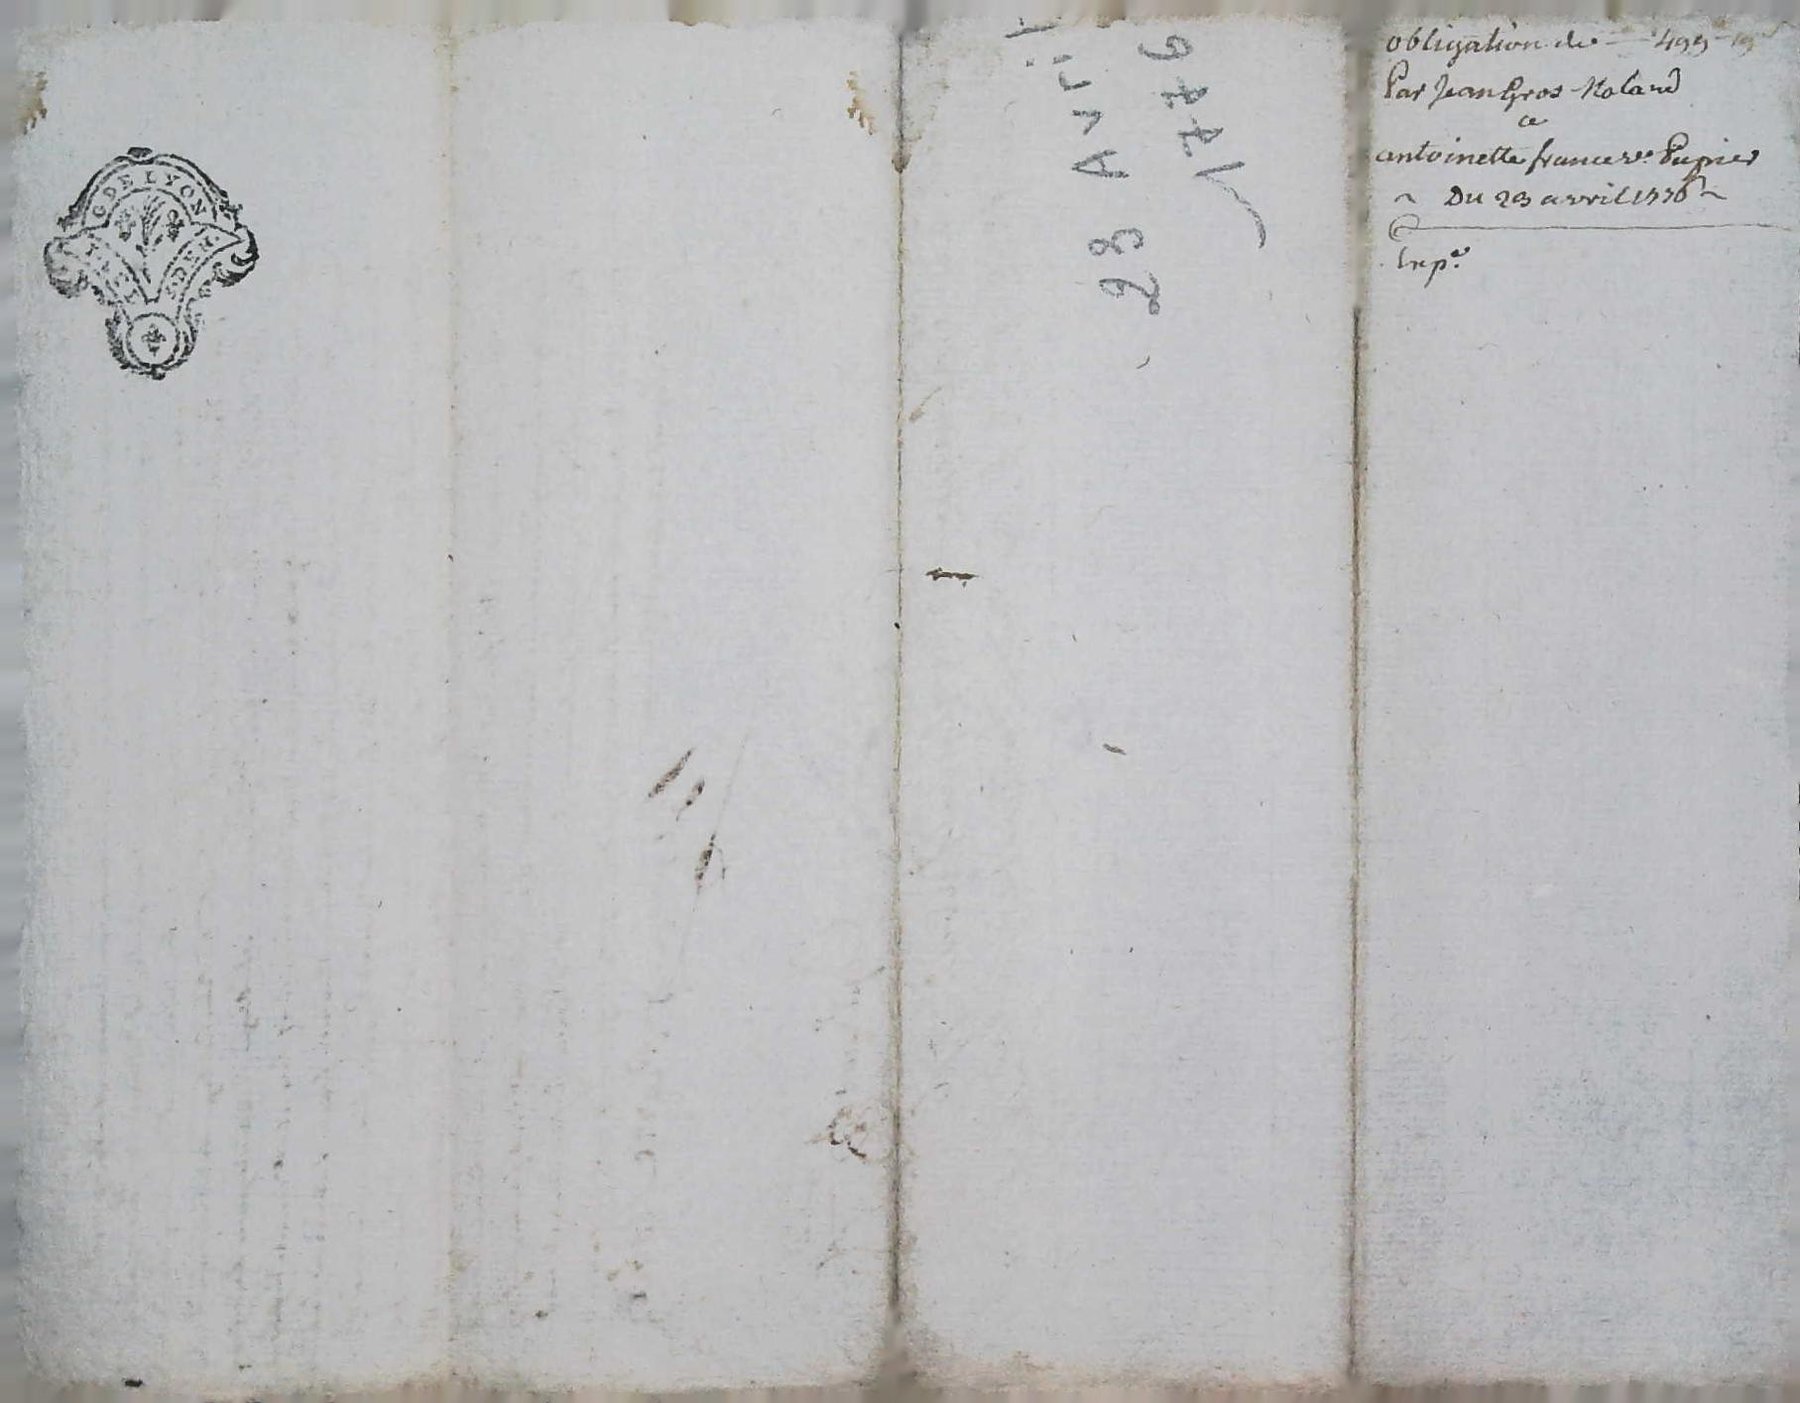 G DE LYON
23 Avril
1776
obligation de 499 19ˢ
Par Jean Gros Roland
a
antoinette france vᵉ Pupier
Du 23 avril 1776
Expᵉ